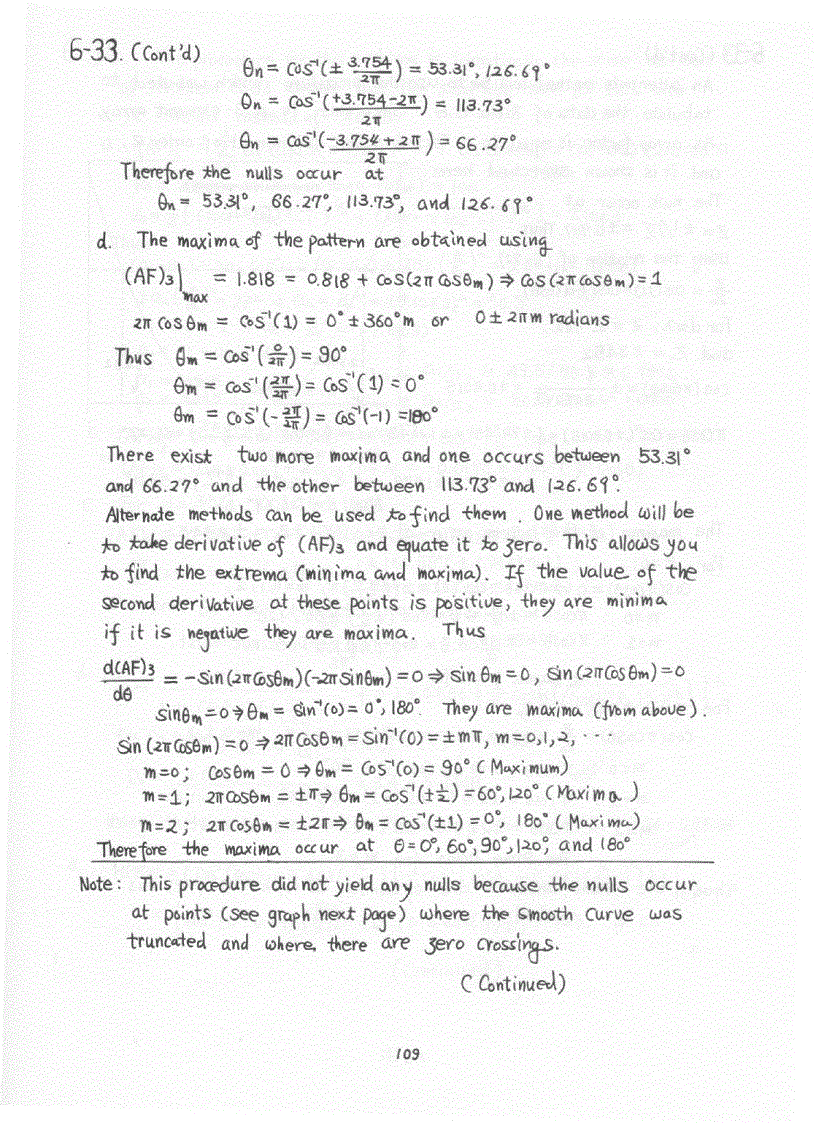 6-33. (Cont'd)
θn = Cos⁻¹(± 3.754/2π) = 53.31°, 126.69°
θn = Cos⁻¹(+3.754-2π/2π) = 113.73°
θn = Cos⁻¹(-3.754+2π/2π) = 66.27°
Therefore the nulls occur at
θn = 53.31°, 66.27°, 113.73°, and 126.69°
d. The maxima of the pattern are obtained using
(AF)₃|max = 1.818 = 0.818 + Cos(2π Cosθm) ⇒ Cos(2π Cosθm) = 1
2π Cosθm = Cos⁻¹(1) = 0° ± 360°m or 0 ± 2πm radians
Thus θm = Cos⁻¹(0/2π) = 90°
θm = Cos⁻¹(2π/2π) = Cos⁻¹(1) = 0°
θm = Cos⁻¹(-2π/2π) = Cos⁻¹(-1) = 180°
There exist two more maxima and one occurs between 53.31°
and 66.27° and the other between 113.73° and 126.69°.
Alternate methods can be used to find them. One method will be
to take derivative of (AF)₃ and equate it to zero. This allows you
to find the extrema (minima and maxima). If the value of the
second derivative at these points is positive, they are minima
if it is negative they are maxima. Thus
d(AF)₃/dθ = -Sin(2πCosθm)(-2πSinθm) = 0 ⇒ Sinθm = 0, Sin(2πCosθm) = 0
Sinθm = 0 ⇒ θm = Sin⁻¹(0) = 0°, 180°. They are maxima (from above).
Sin(2πCosθm) = 0 ⇒ 2πCosθm = Sin⁻¹(0) = ±mπ, m=0,1,2, ···
m=0; Cosθm = 0 ⇒ θm = Cos⁻¹(0) = 90° (Maximum)
m=1; 2πCosθm = ±π ⇒ θm = Cos⁻¹(±½) = 60°, 120° (Maxima)
m=2; 2πCosθm = ±2π ⇒ θm = Cos⁻¹(±1) = 0°, 180° (Maxima)
Therefore the maxima occur at θ = 0°, 60°, 90°, 120°, and 180°
Note: This procedure did not yield any nulls because the nulls occur
at points (see graph next page) where the smooth curve was
truncated and where, there are zero crossings.
(Continued)
109